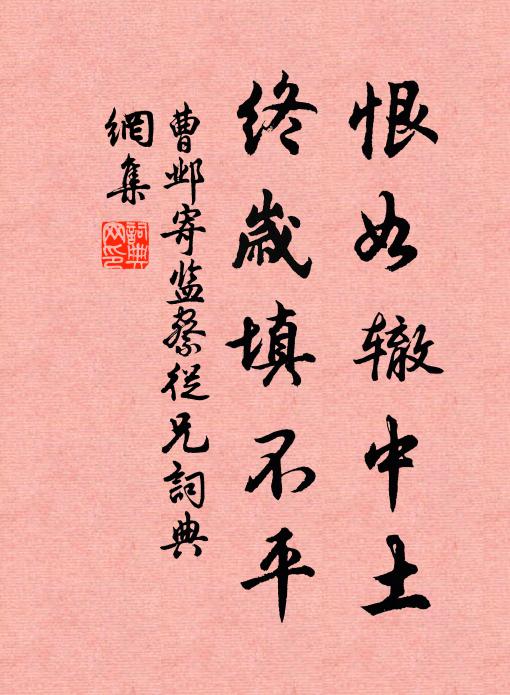 恨如辙中土
终岁填不平
曹邺寄监察從兄詞典
網集
詞典
网印